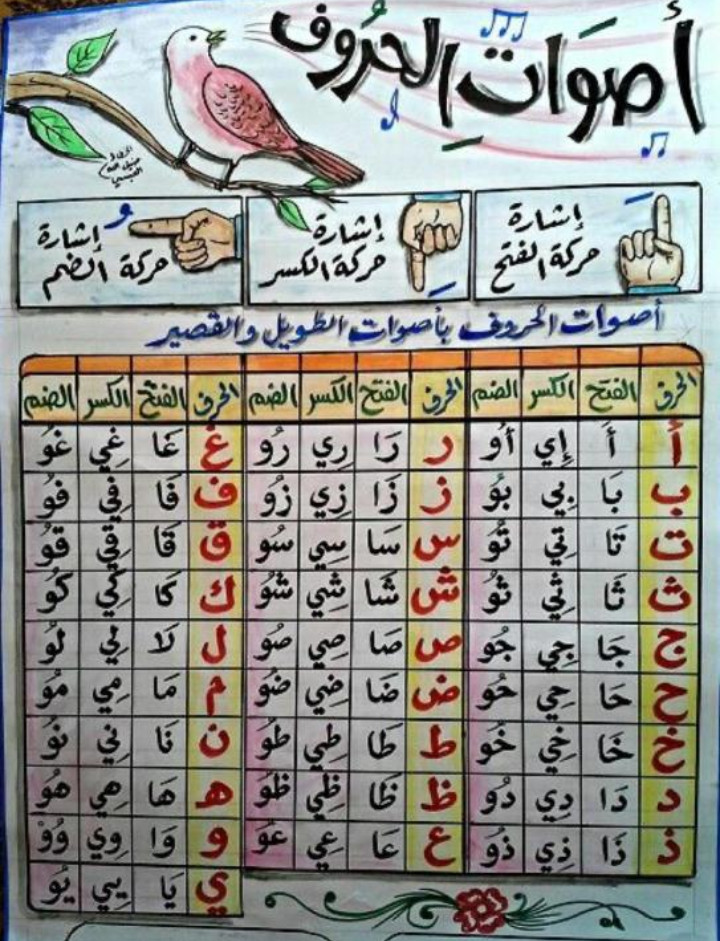 أصوات الحروف
إشارة حركة الفتح
إشارة حركة الكسر
إشارة حركة الضم
أصوات الحروف بأصوات الطويل والقصير
الحرف الفتح الكسر الضم الحرف الفتح الكسر الضم الحرف الفتح الكسر الضم
أ أَ إِي أُو ر رَا رِي رُو غ غَا غِي غُو
ب بَا بِي بُو ز زَا زِي زُو ف فَا فِي فُو
ت تَا تِي تُو س سَا سِي سُو ق قَا قِي قُو
ث ثَا ثِي ثُو ش شَا شِي شُو ك كَا كِي كُو
ج جَا جِي جُو ص صَا صِي صُو ل لَا لِي لُو
ح حَا حِي حُو ض ضَا ضِي ضُو م مَا مِي مُو
خ خَا خِي خُو ط طَا طِي طُو ن نَا نِي نُو
د دَا دِي دُو ظ ظَا ظِي ظُو ه هَا هِي هُو
ذ ذَا ذِي ذُو ع عَا عِي عُو و وَا وِي وُوْ
ي يَا يِي يُو